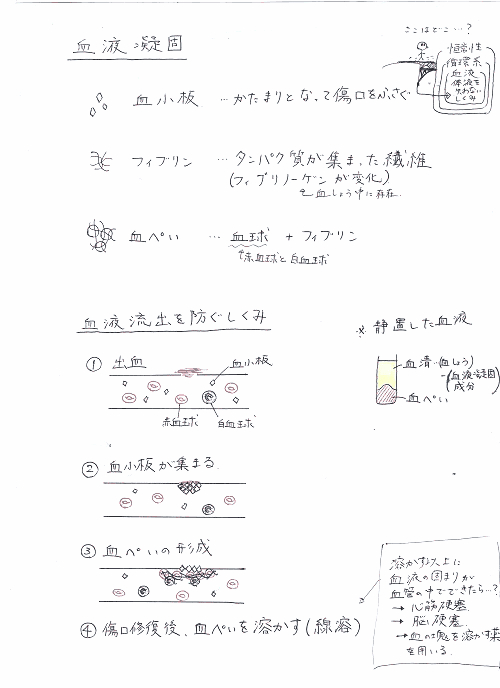 ここはどこ…?
恒常性
循環系
血液
体液を
失わない
しくみ
血液凝固
血小板 …かたまりとなって傷口をふさぐ
フィブリン …タンパク質が集まった繊維
(フィブリノーゲンが変化)
血しょう中に存在.
血ぺい … 血球 + フィブリン
赤血球と白血球
血液流出を防ぐしくみ
① 出血
血小板
赤血球
白血球
※ 静置した血液
血清…(血しょう)
-(血液凝固
成分)
血ぺい
② 血小板が集まる.
③ 血ぺいの形成
④ 傷口修復後、血ぺいを溶かす(線溶)
溶かす以上に
血液の固まりが
血管の中でできたら…?
→ 心筋硬塞
→ 脳硬塞.
→ 血の塊を溶かす薬
を用いる.